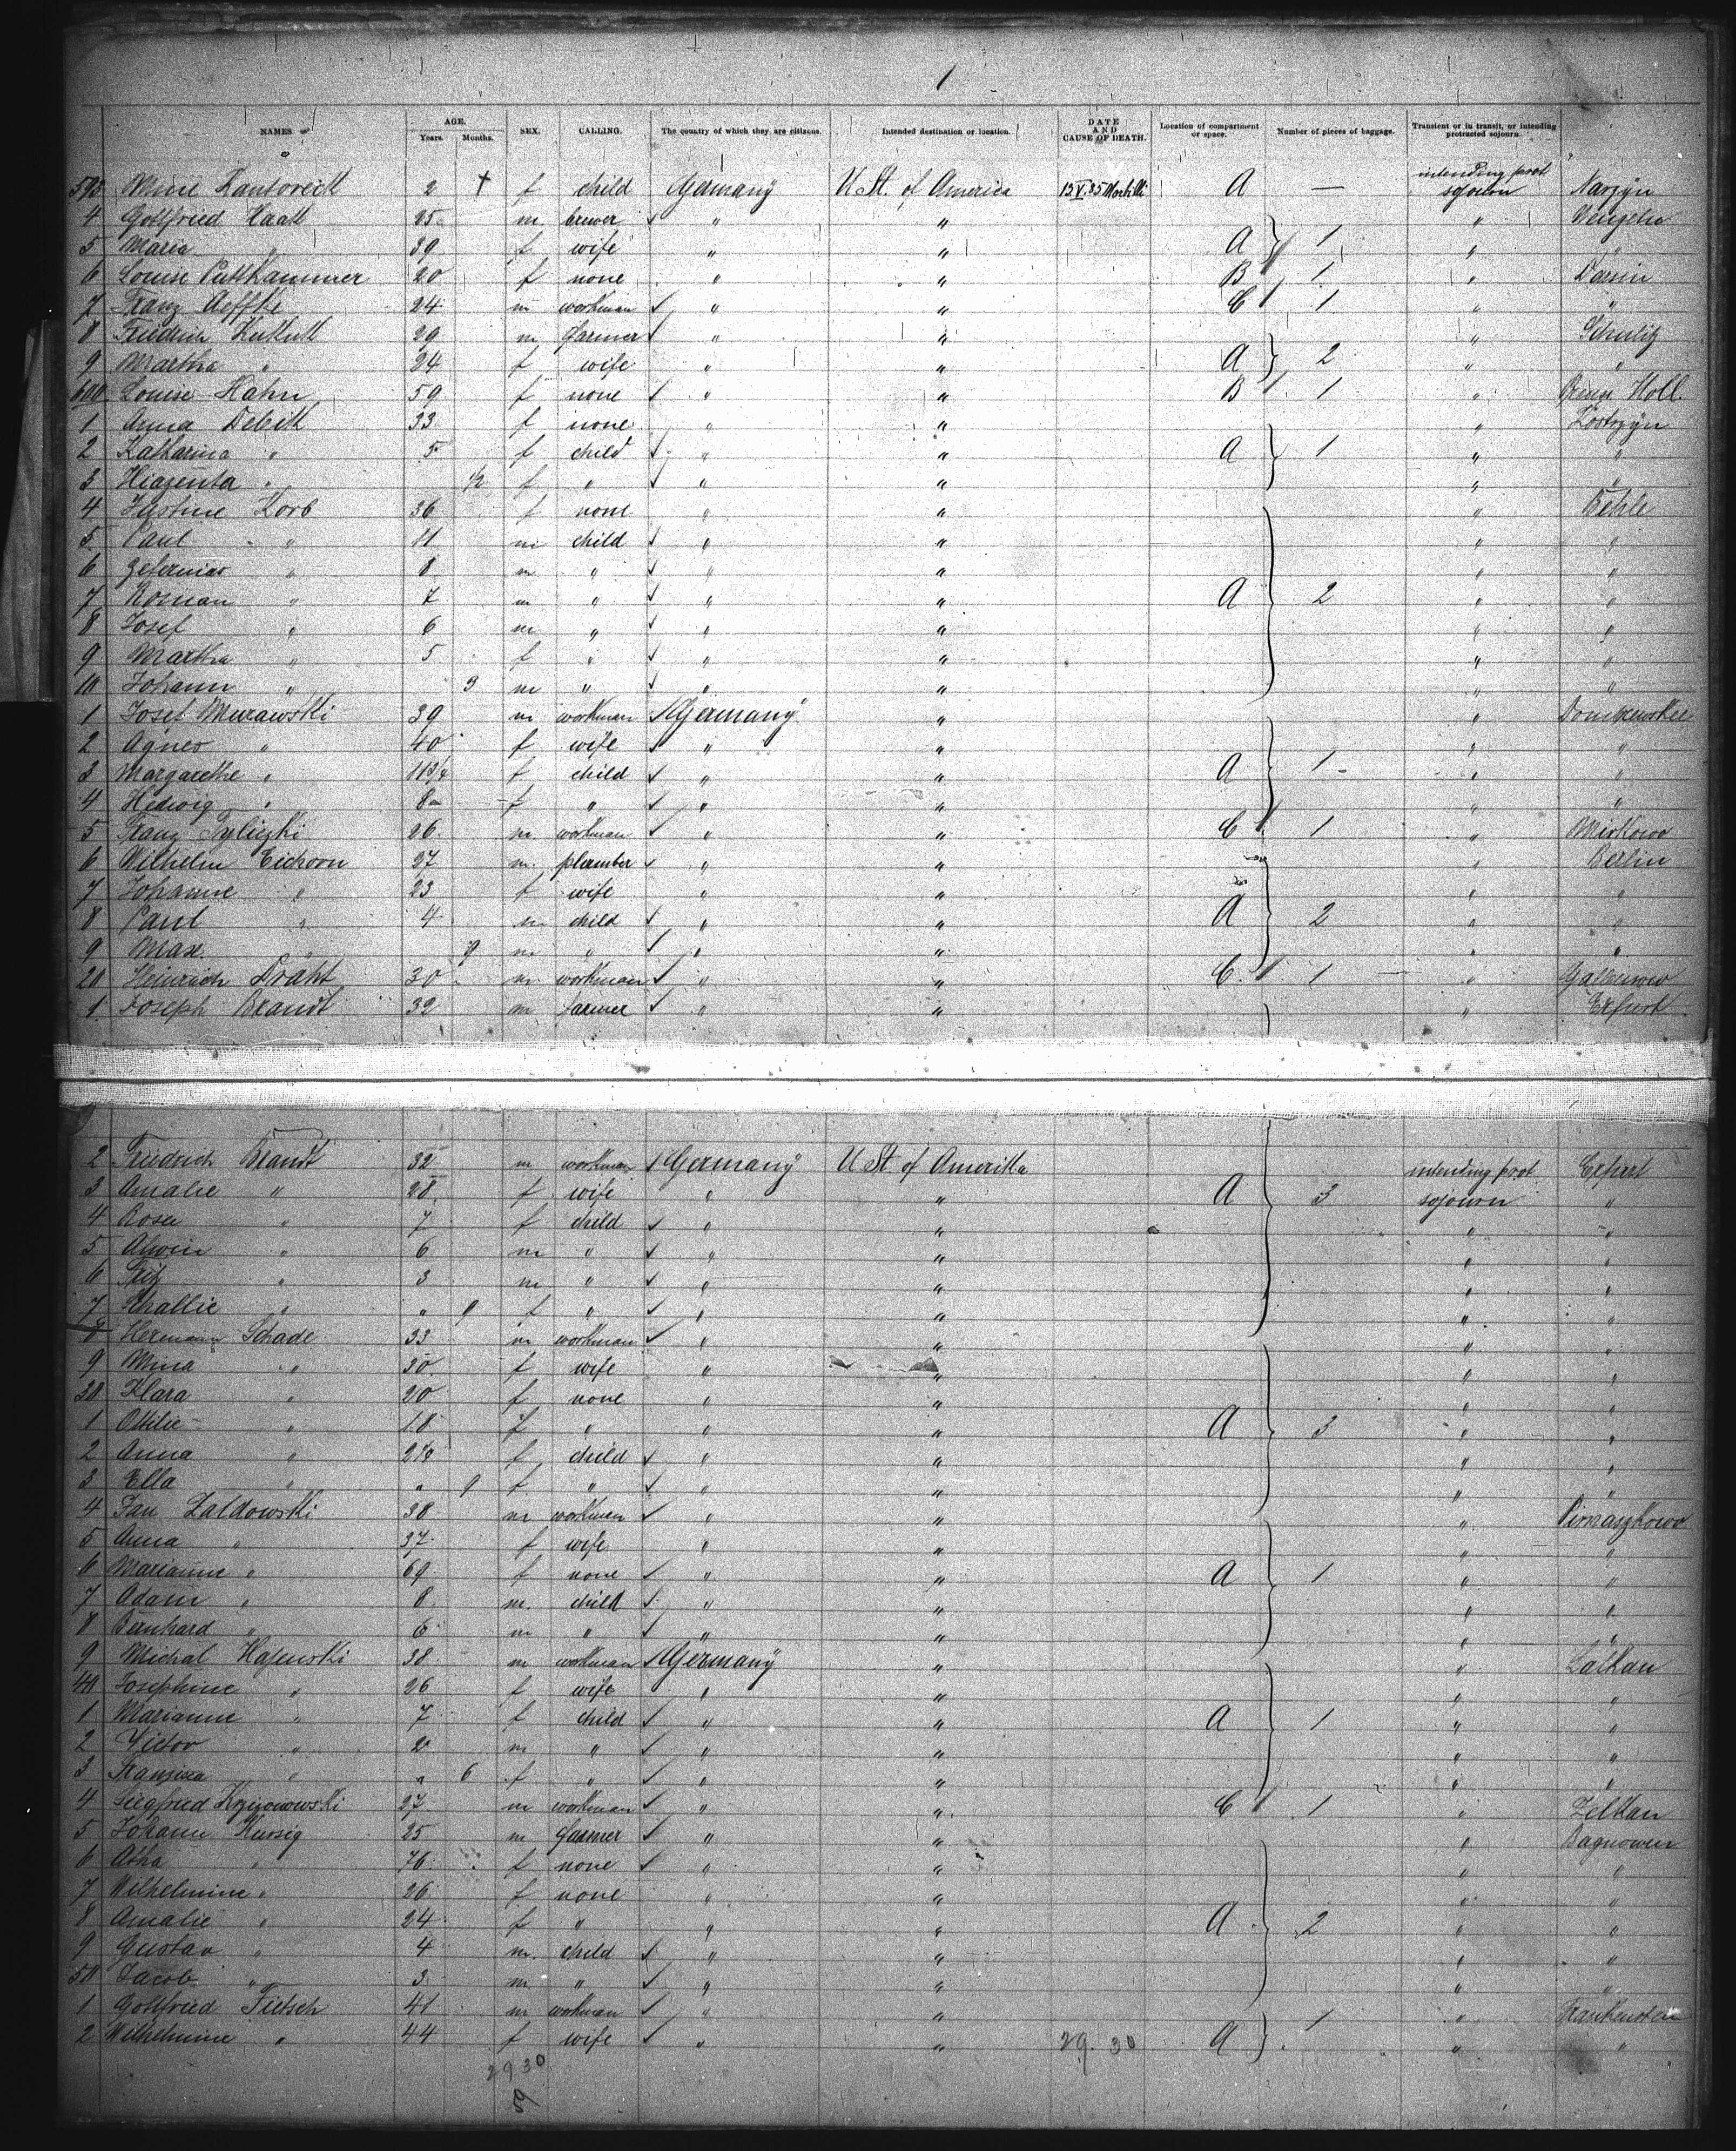 1
NAMES AGE. Years. Months. SEX. CALLING. The country of which they are citizens. Intended destination or location. DATE AND CAUSE OF DEATH. Location of compartment or space. Number of pieces of baggage. Transient or in transit, or intending protracted sojourn.
593 2 † f child Germany U St. of America A — intending prot sojourn Narzyn
4 Gottfried Haak 25 m brewer " " "
5 Maria " 39 f wife " " A 1 "
6 Louise Puttkammer 20 f none " " B 1 " Darsin
7 Franz 24 m workman " " C 1 " "
8 Friedrich 29 m farmer " " " Schulitz
9 Martha " 24 f wife " " A 2 " "
600 Louise Hahn 59 f none " " B 1 " Holl.
1 Anna 33 f none " " " Kostrzyn
2 Katharina " 5 f child " " A 1 " "
3 " 1/2 f " " " " "
4 Justine Korb 36 f none " " " Behle
5 Paul " 11 m child " " " "
6 " 8 m " " " " "
7 Roman " 7 m " " " A 2 " "
8 Josef " 6 m " " " " "
9 Martha " 5 f " " " " "
10 Johann " 9 m " " " " "
1 Josef Murawski 39 m workman Germany " "
2 Agnes " 40 f wife " " " "
3 Margarethe " 11 3/4 f child " " A 1 " "
4 Hedwig " 8 f " " " " "
5 Franz 26 m workman " " C 1 " Mirkowo
6 Wilhelm Eichorn 27 m plumber " " " Berlin
7 Johanne " 23 f wife " " " "
8 Paul " 4 m child " " A 2 " "
9 Max " 9 m " " " " "
20 Heinrich Draht 30 m workman " " C 1 "
1 Joseph Brandt 32 m farmer " " " Erfurt
2 Friedrich Brandt 32 m workman Germany U St. of Amerika intending prot Erfurt
3 Amalie " 28 f wife " " A 3 sojourn "
4 Rosa " 7 f child " " " "
5 Alwin " 6 m " " " " "
6 Fritz " 3 m " " " " "
7 " " 9 f " " " " "
8 Hermann Schade 33 m workman " " " "
9 Mina " 30 f wife " " " "
30 Klara " 20 f none " " " "
1 Ottilie " 18 f " " " A 3 " "
2 Anna " f child " " " "
3 Ella " " 9 f " " " " "
4 Jan Zaldowski 38 m workman " " "
5 Anna " 37 f wife " " " "
6 Marianne " 69 f none " " A 1 " "
7 Adam " 8 m child " " " "
8 Bernhard " 6 m " " " " "
9 Michal Hajewski 38 m workman Germany " "
40 Josephine " 26 f wife " " " "
1 Marianne " 7 f child " " A 1 " "
2 Victor " 2 m " " " " "
3 Franziska " " 6 f " " " " "
4 Siegfried 27 m workman " " C 1 "
5 Johann 25 m farmer " " " Bagnowen
6 " 76 f none " " " "
7 Wilhelmine " 26 f none " " " "
8 Amalie " 24 f " " " A 2 " "
9 Gustav " 4 m child " " " "
50 Jacob " 3 m " " " " "
1 Gottfried Tietsch 41 m workman " " 1 "
2 Wilhelmine " 44 f wife " " 29. 30 A " "
29 30